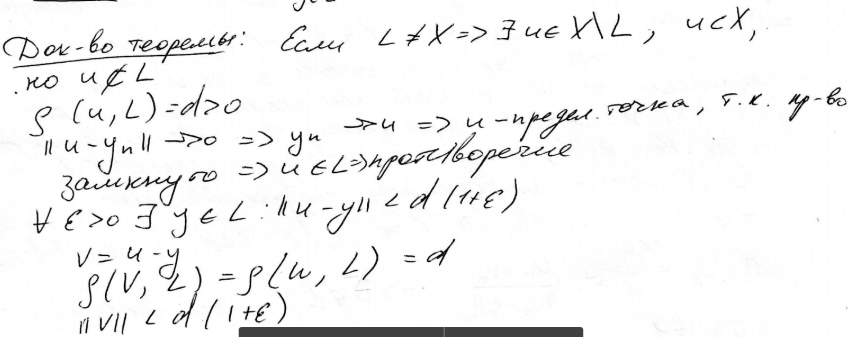 Док-во теоремы: Если L ≠ X => ∃ u ∈ X\L, u ⊂ X,
но u ⊄ L
ρ (u, L) = d > 0
||u - yₙ|| → 0 => yₙ → u => u - предел. точка, т.к. пр-во
замкнуто => u ∈ L => противоречие
∀ ε > 0 ∃ y ∈ L : ||u - y|| < d (1+ε)
v = u - y
ρ(V, L) = ρ(u, L) = d
||v|| < d (1+ε)